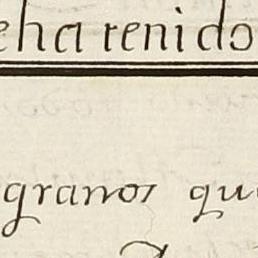 eha tenido
granos que